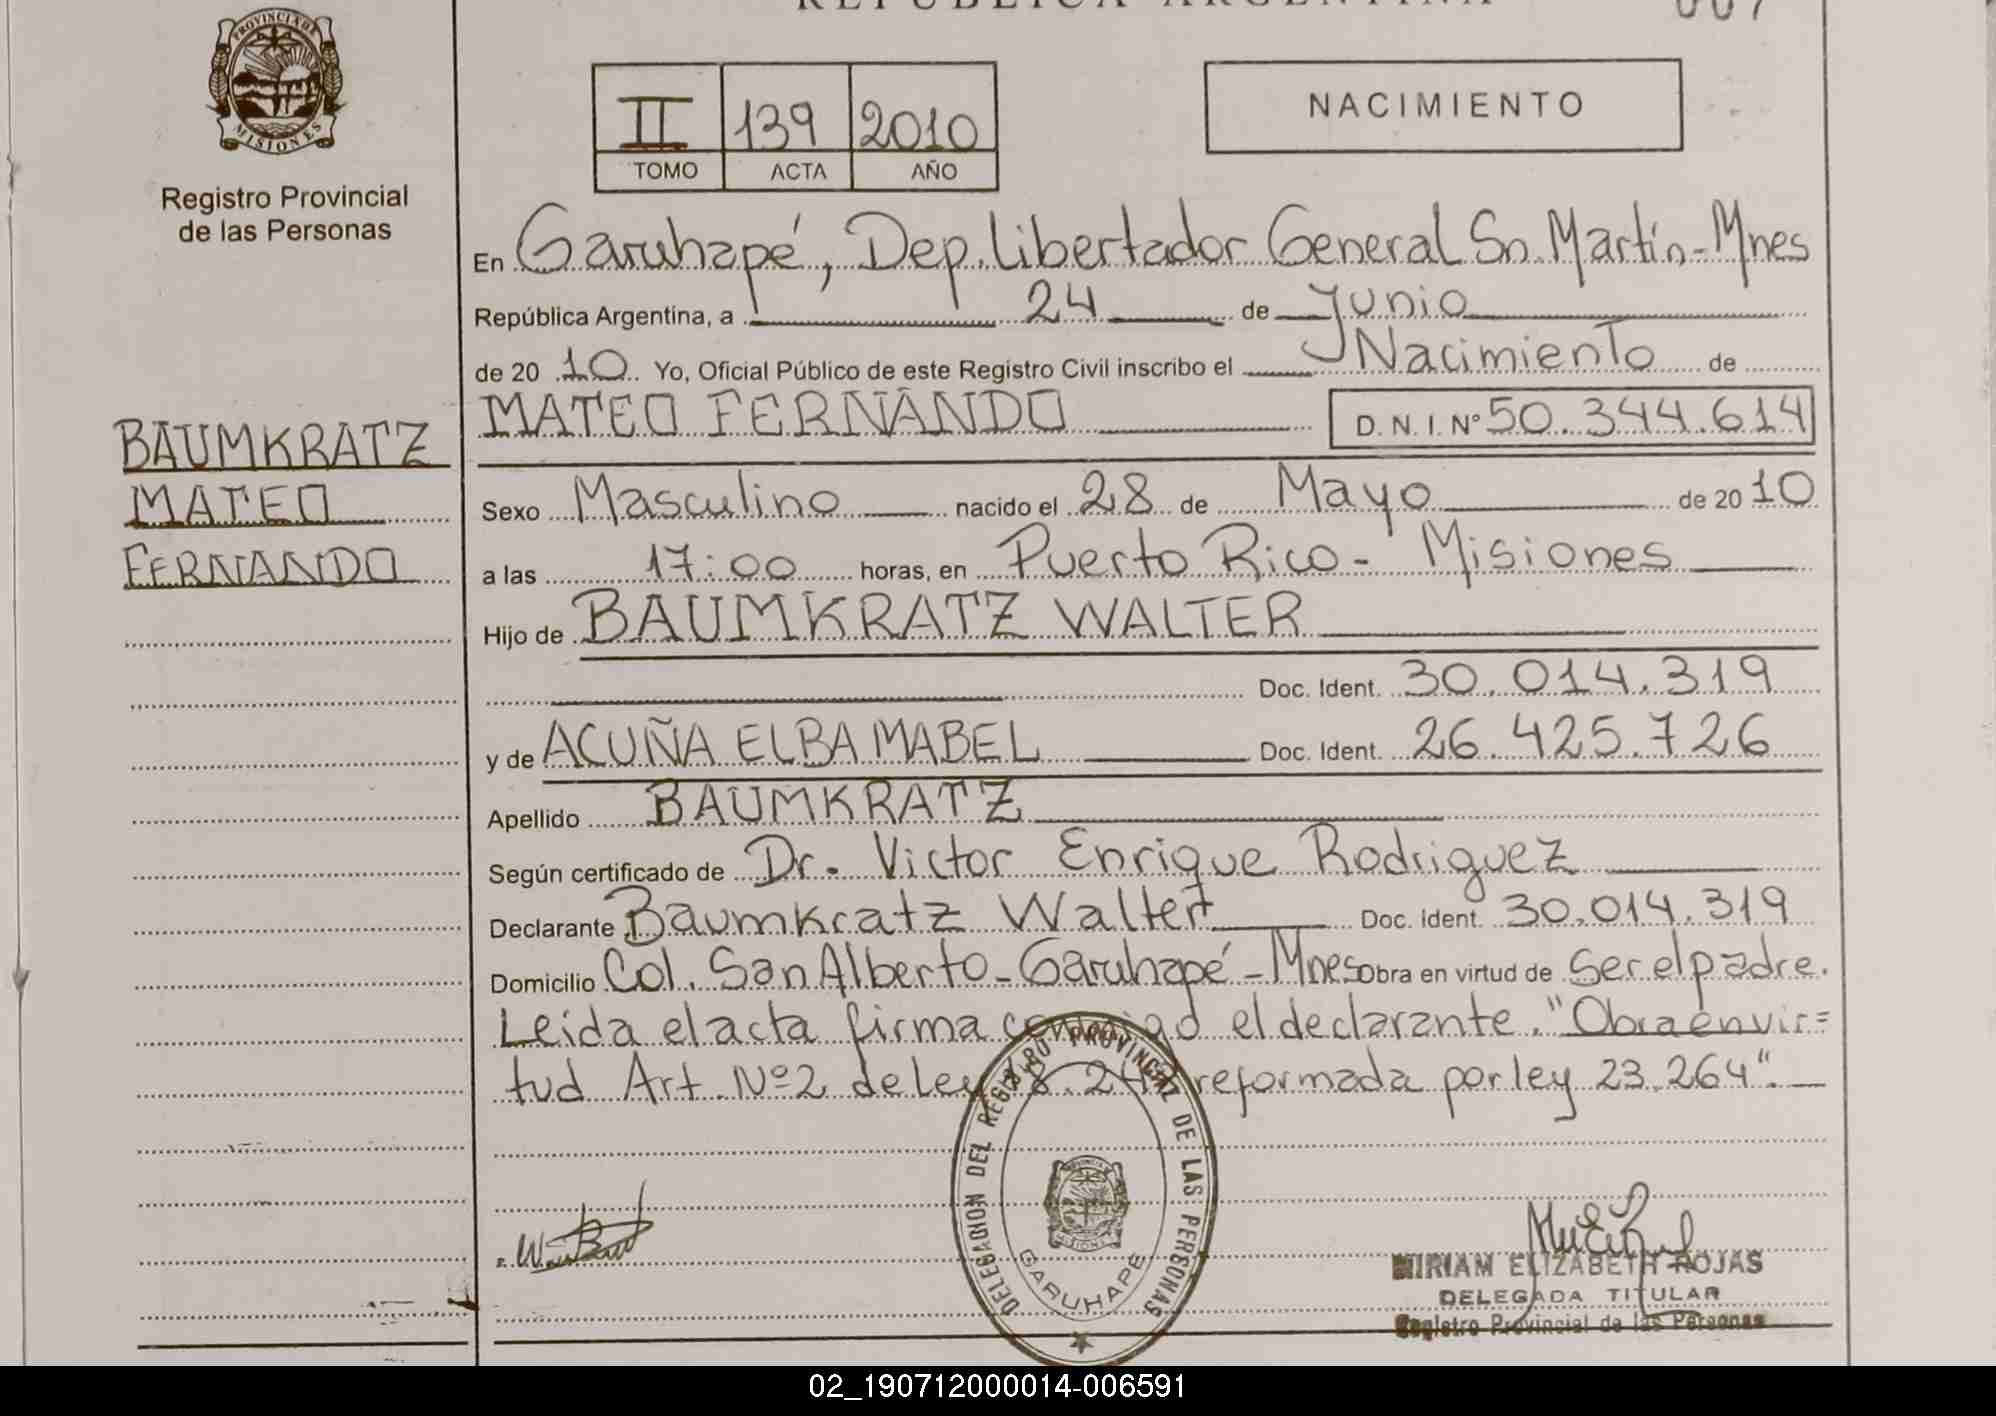 REPUBLICA ARGENTINA
007
PROVINCIA DE
MISIONES
Registro Provincial
de las Personas
II 139 2010
TOMO ACTA AÑO
NACIMIENTO
En Garuhapé, Dep. Libertador General Sn. Martín - Mnes
República Argentina, a 24 de Junio
de 20 10 Yo, Oficial Público de este Registro Civil inscribo el Nacimiento de
MATEO FERNANDO D. N. I. Nº 50.344.614
BAUMKRATZ
MATEO
FERNANDO
Sexo Masculino nacido el 28 de Mayo de 20 10
a las 17:00 horas, en Puerto Rico - Misiones
Hijo de BAUMKRATZ WALTER
Doc. Ident. 30.014.319
y de ACUÑA ELBA MABEL Doc. Ident. 26.425.726
Apellido BAUMKRATZ
Según certificado de Dr. Victor Enrique Rodriguez
Declarante Baumkratz Walter Doc. Ident. 30.014.319
Domicilio Col. San Alberto - Garuhapé - Mnes Obra en virtud de ser el padre.
Leida el acta firma el declarante. "Obra en vir=
tud Art. Nº 2 de Ley reformada por ley 23.264".
DELEGACION DEL REGISTRO PROVINCIAL DE LAS PERSONAS
MISIONES
GARUHAPE
MIRIAM ELIZABETH ROJAS
DELEGADA TITULAR
Registro Provincial de las Personas
02_190712000014-006591